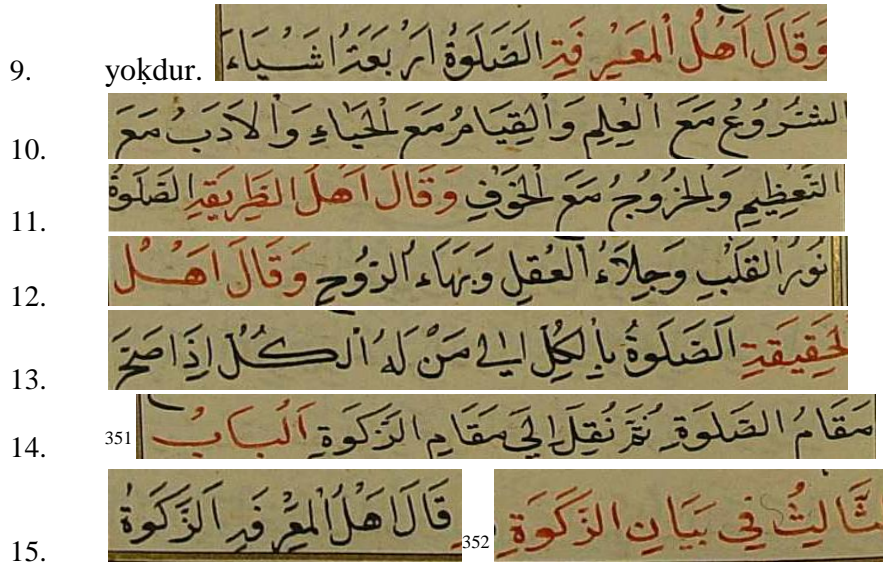 9. yoḳdur. وَقَالَ اَهْلُ الْمَعْرِفَةِ الصَّلَوةُ اَرْبَعَةُ اَشْيَاءَ
10. الشُّرُوعُ مَعَ الْعِلْمِ وَالْقِيَامُ مَعَ الْحَيَاءِ وَالْاَدَبُ مَعَ
11. التَّعْظِيمِ وَالْخُرُوجُ مَعَ الْخَوْفِ وَقَالَ اَهْلُ الطَّرِيقَةِ الصَّلَوةُ
12. نُورُ الْقَلْبِ وَجِلَاءُ الْعَقْلِ وَبَهَاءُ الرُّوحِ وَقَالَ اَهْلُ
13. الْحَقِيقَةِ الصَّلَوةُ بِالْكُلِّ اِلَى مَنْ لَهُ الْكُلُّ اِذَا صَحَّ
14. 351 مَقَامُ الصَّلَوةِ ثُمَّ نُقِلَ اِلَى مَقَامِ الزَّكَوةِ اَلْبَابُ
15. الثَّالِثُ فِي بَيَانِ الزَّكَوةِ 352 قَالَ اَهْلُ الْمَعْرِفَةِ الزَّكَوةُ